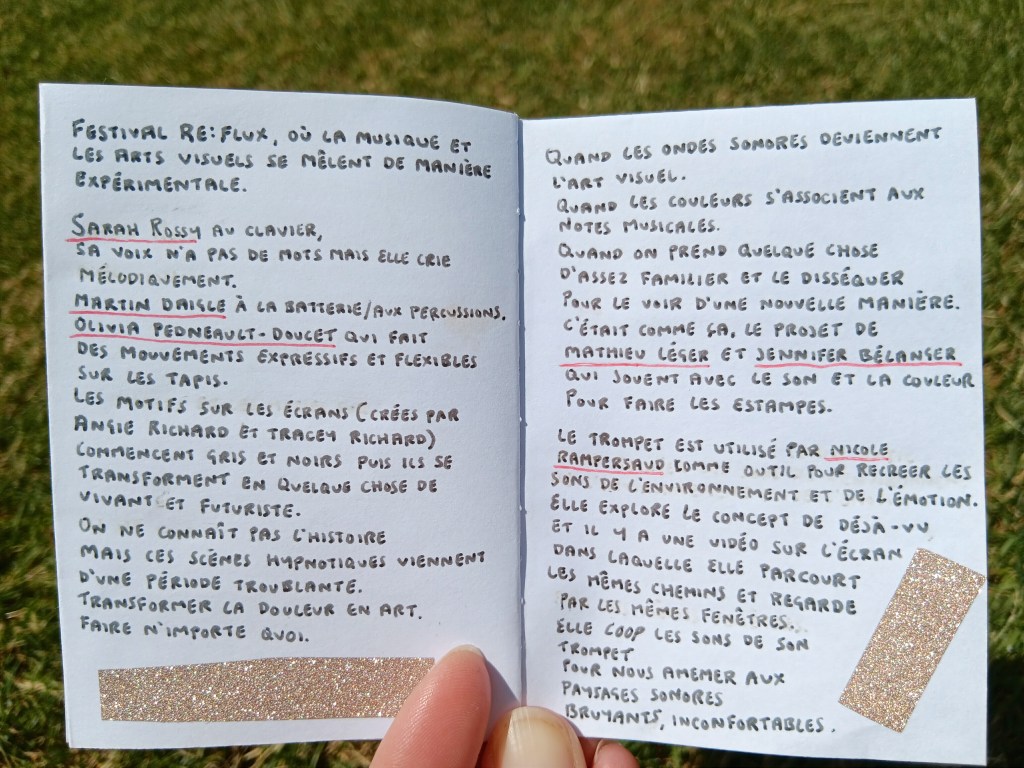 FESTIVAL RE:FLUX, OÙ LA MUSIQUE ET
LES ARTS VISUELS SE MÊLENT DE MANIÈRE
EXPÉRIMENTALE.
SARAH ROSSY AU CLAVIER,
SA VOIX N'A PAS DE MOTS MAIS ELLE CRIE
MÉLODIQUEMENT.
MARTIN DAIGLE À LA BATTERIE/AUX PERCUSSIONS.
OLIVIA PEDNEAULT-DOUCET QUI FAIT
DES MOUVEMENTS EXPRESSIFS ET FLEXIBLES
SUR LES TAPIS.
LES MOTIFS SUR LES ÉCRANS (CRÉES PAR
ANGIE RICHARD ET TRACEY RICHARD)
COMMENCENT GRIS ET NOIRS PUIS ILS SE
TRANSFORMENT EN QUELQUE CHOSE DE
VIVANT ET FUTURISTE.
ON NE CONNAÎT PAS L'HISTOIRE
MAIS CES SCÈNES HYPNOTIQUES VIENNENT
D'UNE PÉRIODE TROUBLANTE.
TRANSFORMER LA DOULEUR EN ART.
FAIRE N'IMPORTE QUOI.
QUAND LES ONDES SONORES DEVIENNENT
L'ART VISUEL.
QUAND LES COULEURS S'ASSOCIENT AUX
NOTES MUSICALES.
QUAND ON PREND QUELQUE CHOSE
D'ASSEZ FAMILIER ET LE DISSÉQUER
POUR LE VOIR D'UNE NOUVELLE MANIÈRE.
C'ÉTAIT COMME ÇA, LE PROJET DE
MATHIEU LÉGER ET JENNIFER BÉLANGER
QUI JOUENT AVEC LE SON ET LA COULEUR
POUR FAIRE LES ESTAMPES.
LE TROMPET EST UTILISÉ PAR NICOLE
RAMPERSAUD COMME OUTIL POUR RECREER LES
SONS DE L'ENVIRONNEMENT ET DE L'ÉMOTION.
ELLE EXPLORE LE CONCEPT DE DÉJÀ-VU
ET IL Y A UNE VIDÉO SUR L'ÉCRAN
DANS LAQUELLE ELLE PARCOURT
LES MÊMES CHEMINS ET REGARDE
PAR LES MÊMES FENÊTRES...
ELLE LOOP LES SONS DE SON
TROMPET
POUR NOUS AMEMER AUX
PAYSAGES SONORES
BRUYANTS, INCONFORTABLES.